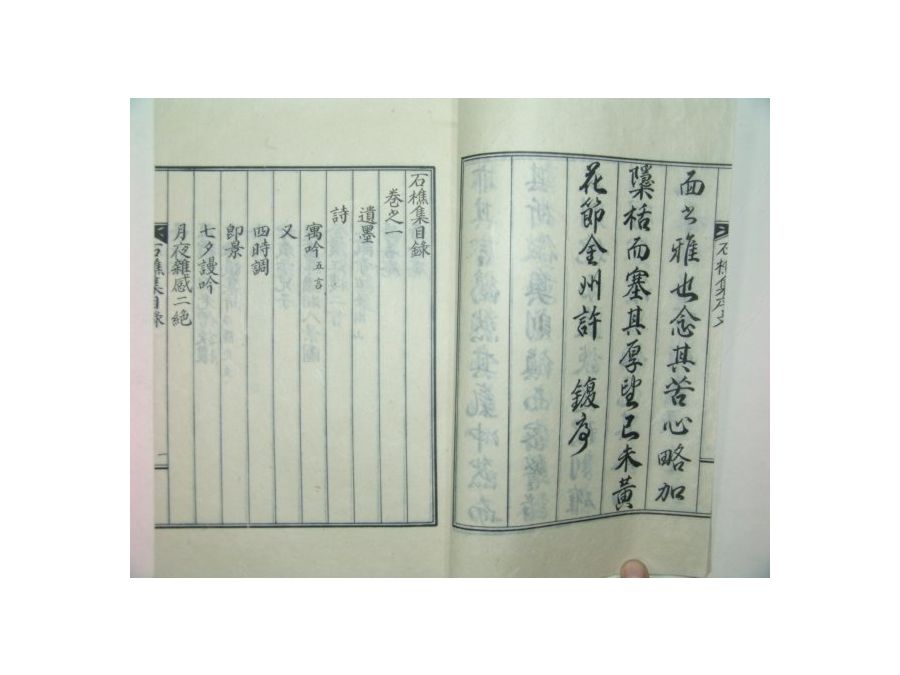 石樵集序文 二
面公雅也念其苦心略加
櫽栝而塞其厚望己未黃
花節金州許鍑序
石樵集目錄
卷之一
遺墨
詩
寓吟五言
又
四時調
卽景
七夕謾吟
月夜雜感二絶
石樵集目錄 一